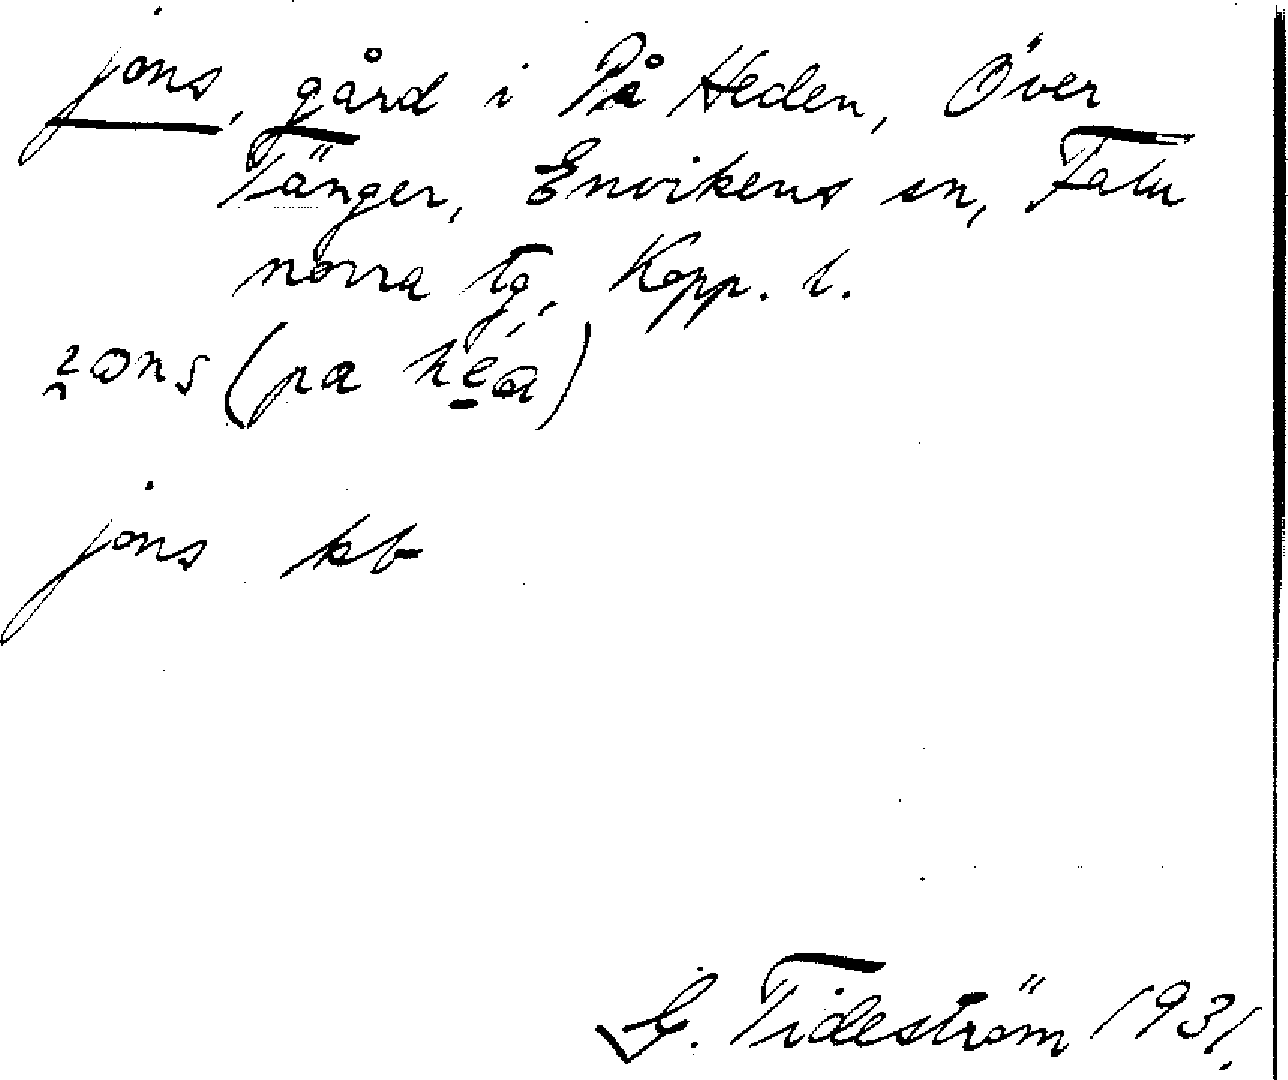 jons, gård i På Heden, Över
Tänger, Envikens sn, Falu
norra tg, Kopp. l.
(pa
jons kb
G. Tideström 1931.